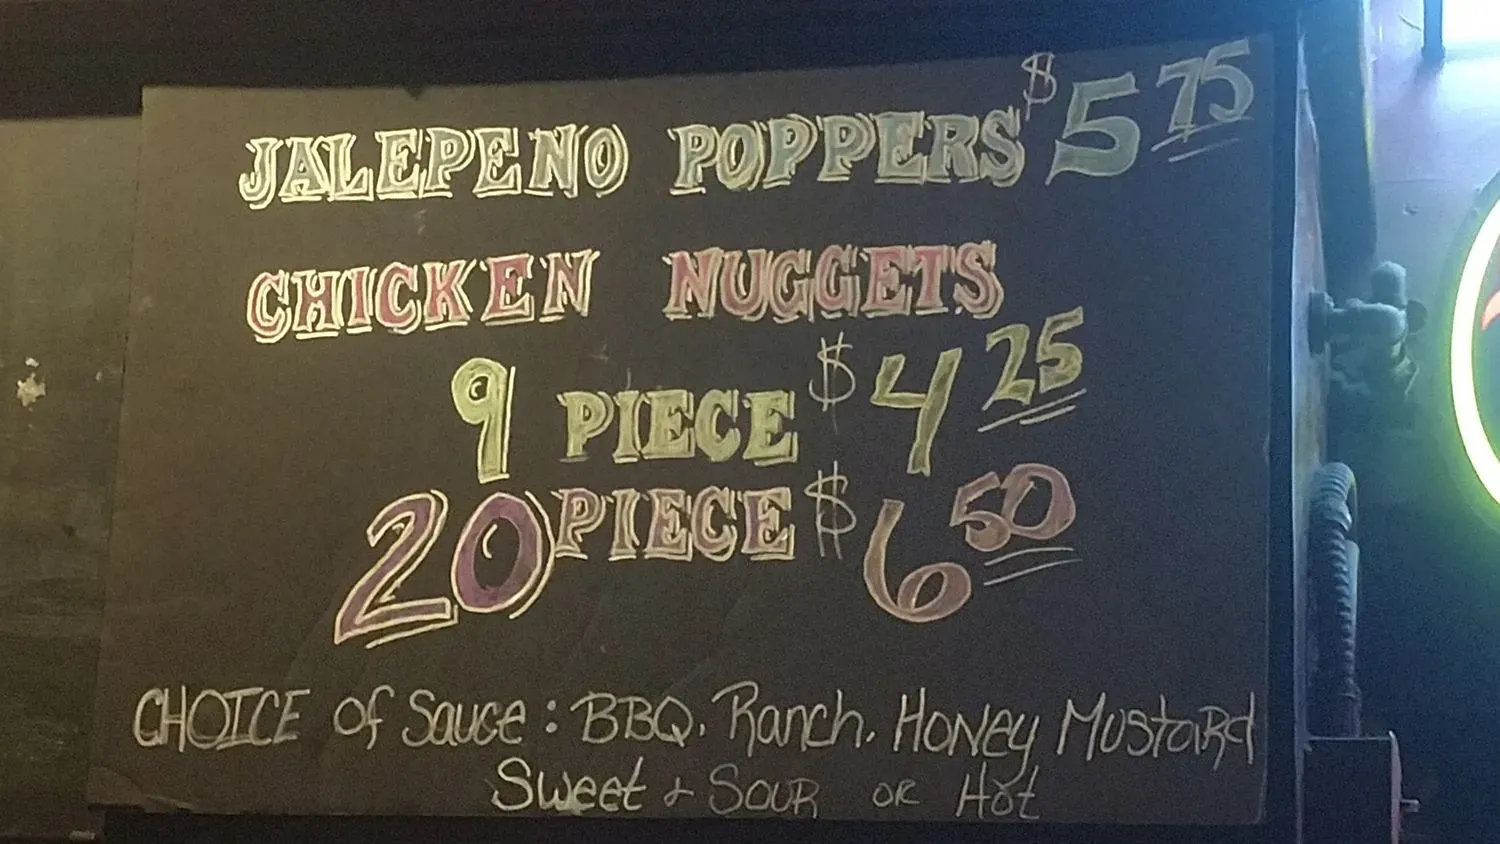 JALEPENO POPPERS $5 75
CHICKEN NUGGETS
9 PIECE $4 25
20 PIECE $6 50
CHOICE of Sauce: BBQ, Ranch, HONEY MUSTARD
Sweet & SOUR OR Hot